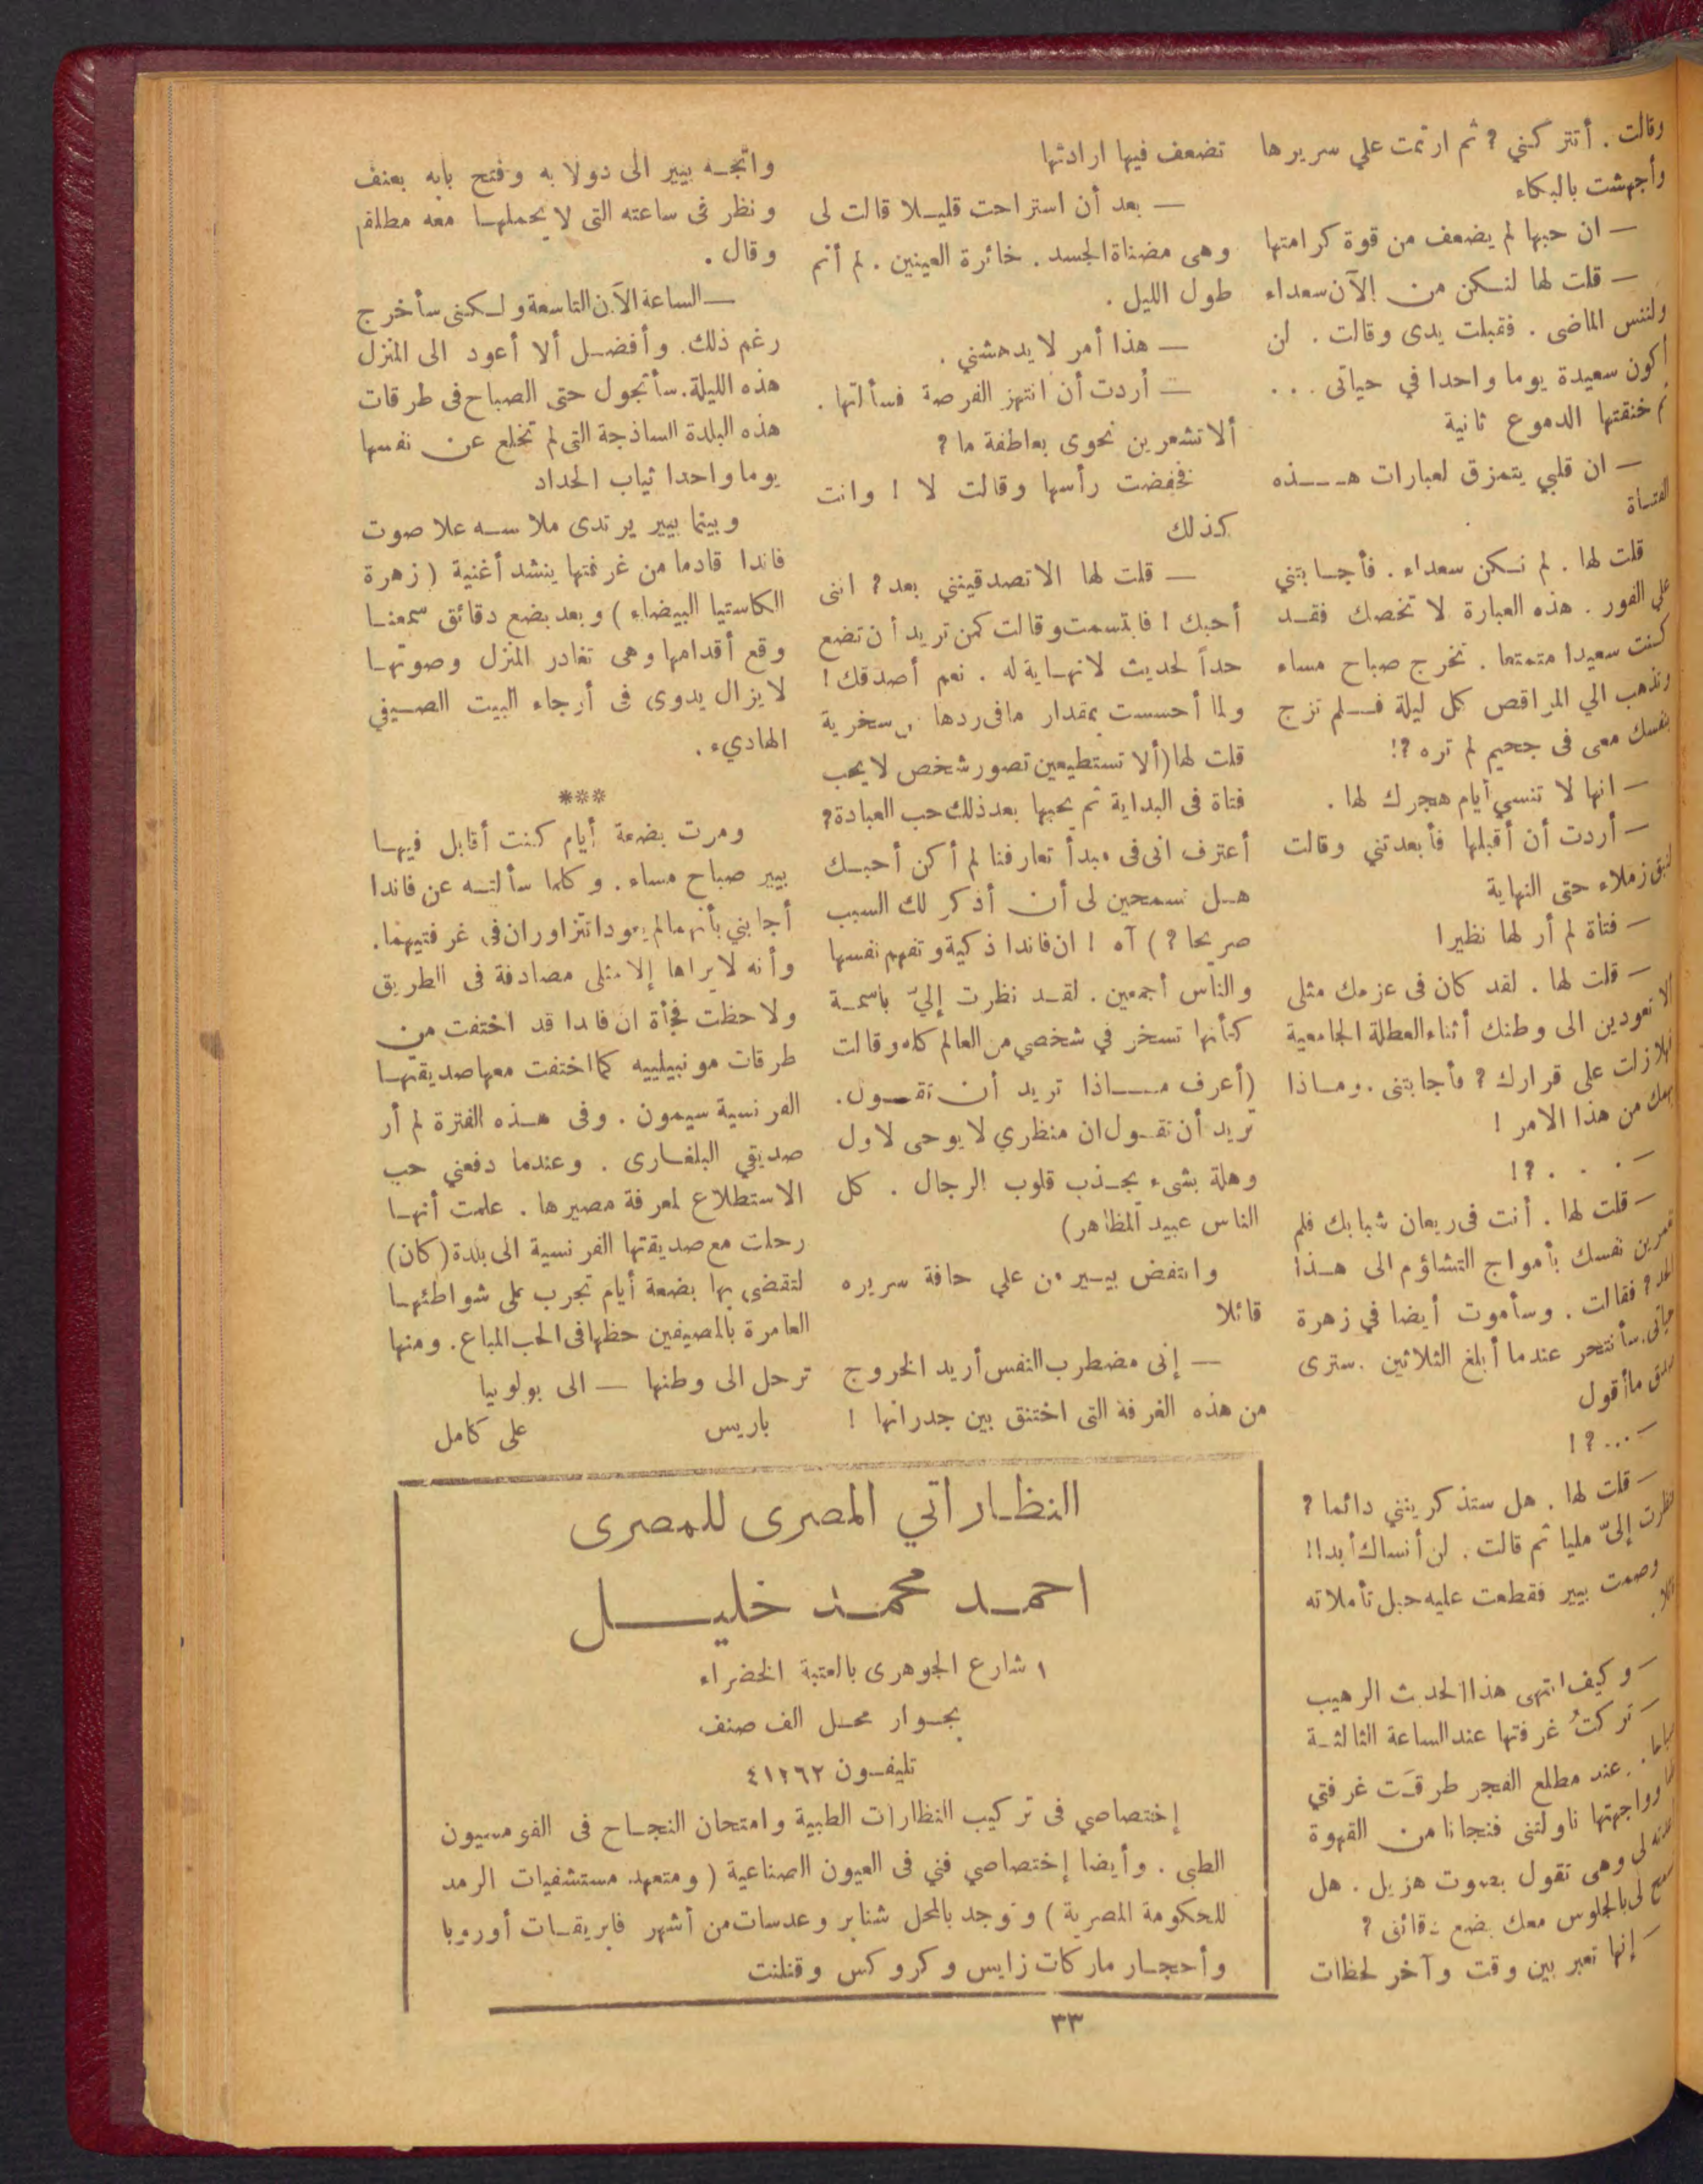 وقالت . أتتركني ؟ ثم ارتمت علي سريرها
وأجهشت بالبكاء
— ان حبها لم يضعف من قوة كرامتها
— قلت لها لنكن من الآن سعداء
ولننس الماضى . فقبلت يدى وقالت . لن
أكون سعيدة يوما واحدا في حياتى . . .
ثم خنقتها الدموع ثانية
— ان قلبي يتمزق لعبارات هذه
الفتاة
قلت لها . لم نكن سعداء . فأجابتني
علي الفور . هذه العبارة لا تخصك فقد
كنت سعيدا متمتعا . تخرج صباح مساء
وتذهب الي المراقص كل ليلة فلم تزج
بنفسك معى فى جحيم لم تره ؟!
— انها لا تنسي أيام هجرك لها .
— أردت أن أقبلها فأبعدتني وقالت
لنبق زملاء حتى النهاية
— فتاة لم أر لها نظيرا
— قلت لها . لقد كان فى عزمك مثلى
ألا تعودين الى وطنك أثناء العطلة الجامعية
فهلا زلت على قرارك ؟ فأجابتنى . وماذا
يهمك من هذا الامر !
— . . . ؟!
— قلت لها . أنت فى ريعان شبابك فلم
تغمرين نفسك بأمواج التشاؤم الى هذا
الحد ؟ فقالت . وسأموت أيضا في زهرة
حياتى . سأنتحر عندما أبلغ الثلاثين . سترى
صدق ما أقول
— ... ؟ !
— قلت لها . هل ستذكرينني دائما ؟
فنظرت إلىّ مليا ثم قالت . لن أنساك أبدا !!
وصمت بيير فقطعت عليه حبل تأملاته
قائلا .
— وكيف انتهى هذا الحدث الرهيب
— تركتُ غرفتها عند الساعة الثالثة
صباحا . عند مطلع الفجر طرقَت غرفتي
ولما وواجهتها ناولتنى فنجانا من القهوة
لى وهى تقول بصوت هزيل . هل
تسمح لى بالجلوس معك بضع دقائق ؟
— إنها تعبر بين وقت وآخر لحظات
تضعف فيها ارادتها
— بعد أن استراحت قليلا قالت لى
وهى مضناة الجسد . خائرة العينين . لم أنم
طول الليل .
— هذا أمر لا يدهشني .
— أردت أن انتهز الفرصة فسألتها .
ألا تشعرين نحوى بعاطفة ما ؟
فخفضت رأسها وقالت لا ! وانت
كذلك
— قلت لها الا تصدقينني بعد ؟ اننى
أحبك ! فابتسمت وقالت كمن تريد أن تضع
حداً لحديث لا نهاية له . نعم أصدقك !
ولما أحسست بمقدار ما فى ردها من سخرية
قلت لها ( ألا تستطيعين تصور شخص لا يحب
فتاة فى البداية ثم يحبها بعد ذلك حب العبادة ؟
أعترف انى فى مبدأ تعارفنا لم أكن أحبك
هل تسمحين لى أن أذكر لك السبب
صريحا ؟ ) آه ! ان فاندا ذكية وتفهم نفسها
والناس أجمعين . لقد نظرت إليّ باسمة
كأنها تسخر في شخصي من العالم كله وقالت
( أعرف ماذا تريد أن تقول .
تريد أن تقول ان منظري لا يوحى لاول
وهلة بشىء يجذب قلوب الرجال . كل
الناس عبيد المظاهر )
وانتفض بيير من علي حافة سريره
قائلا
— إنى مضطرب النفس أريد الخروج
من هذه الغرفة التى اختنق بين جدرانها !
واتجه بيير الى دولابه وفتح بابه بعنف
ونظر فى ساعته التى لا يحملها معه مطلقا
وقال .
— الساعة الآن التاسعة ولكنى سأخرج
رغم ذلك . وأفضل ألا أعود الى المنزل
هذه الليلة . سأتجول حتى الصباح فى طرقات
هذه البلدة الساذجة التى لم تخلع عن نفسها
يوما واحدا ثياب الحداد
وبينما بيير يرتدى ملابسه علا صوت
فاندا قادما من غرفتها ينشد أغنية ( زهرة
الكاستيا البيضاء ) وبعد بضع دقائق سمعنا
وقع أقدامها وهى تغادر المنزل وصوتها
لا يزال يدوى فى أرجاء البيت الصيفي
الهاديء .
***
ومرت بضعة أيام كنت أقابل فيها
بيير صباح مساء . وكلما سألته عن فاندا
أجابني بأنهما لم يعودا يتزاوران فى غرفتيهما .
وأنه لا يراها إلا مثلى مصادفة فى الطريق
ولاحظت فجأة ان فاندا قد اختفت من
طرقات مونبيلييه كما اختفت معها صديقتها
الفرنسية سيمون . وفى هذه الفترة لم أر
صديقي البلغارى . وعندما دفعني حب
الاستطلاع لمعرفة مصيرها . علمت أنها
رحلت مع صديقتها الفرنسية الى بلدة ( كان )
لتقضى بها بضعة أيام تجرب على شواطئها
العامرة بالمصيفين حظها فى الحب المباع . ومنها
ترحل الى وطنها — الى بولونيا
باريس    على كامل
النظاراتي المصرى للمصرى
احمد محمد خليل
١ شارع الجوهرى بالعتبة الخضراء
بجوار محل الف صنف
تليفون ٤١٢٦٢
إختصاصي فى تركيب النظارات الطبية وامتحان النجاح فى القومسيون
الطبى . وأيضا إختصاصي فني فى العيون الصناعية ( ومتعهد مستشفيات الرمد
للحكومة المصرية ) وتوجد بالمحل شنابر وعدسات من أشهر فابريقات أوروبا
وأحجار ماركات زايس وكروكس وقنلنت
٣٣